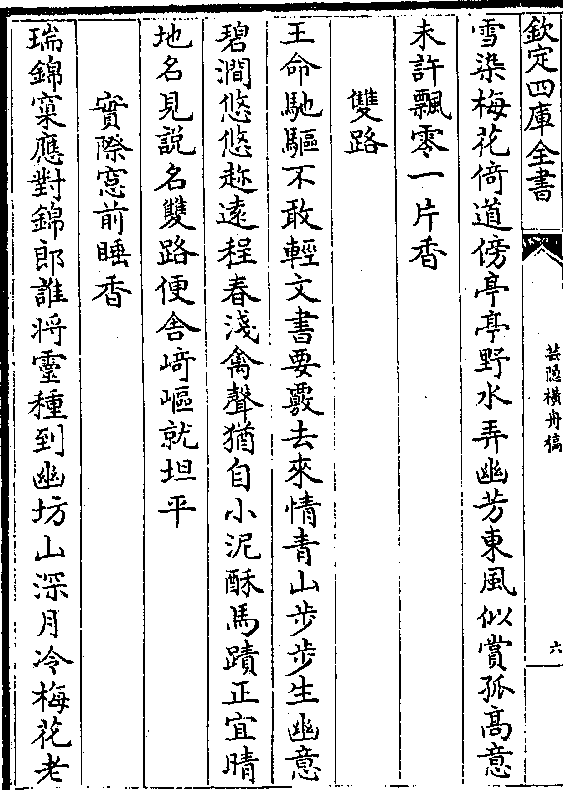 欽定四庫全書
芸隠横舟稿
六
雪染梅花倚道傍亭亭野水弄幽芳東風似賞孤高意
未許飄零一片香
雙路
王命馳驅不敢輕文書要覈去來情青山步步生幽意
碧澗悠悠趂遠程春淺禽聲猶自小泥酥馬蹟正宜晴
地名見說名雙路便舎崎嶇就坦平
實際窓前睡香
瑞錦窠應對錦郎誰將靈種到幽坊山深月冷梅花老